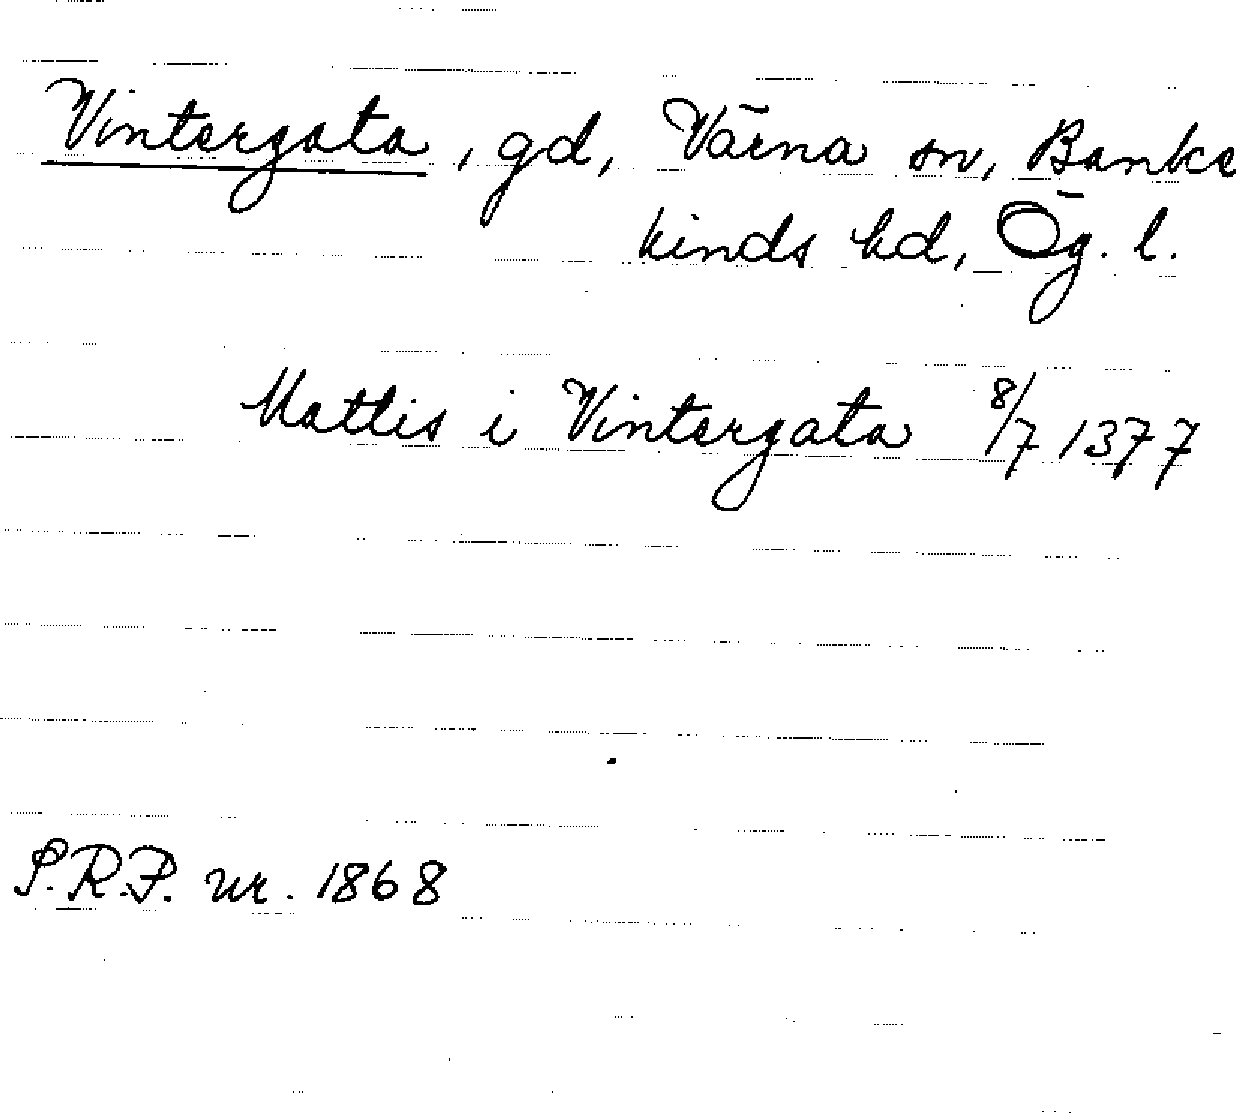 Vintergata, gd, Värna sn, Banke
kinds hd, Ög. l.
Mattis i Vintergata 8/7 1377
S.R.P. nr. 1868